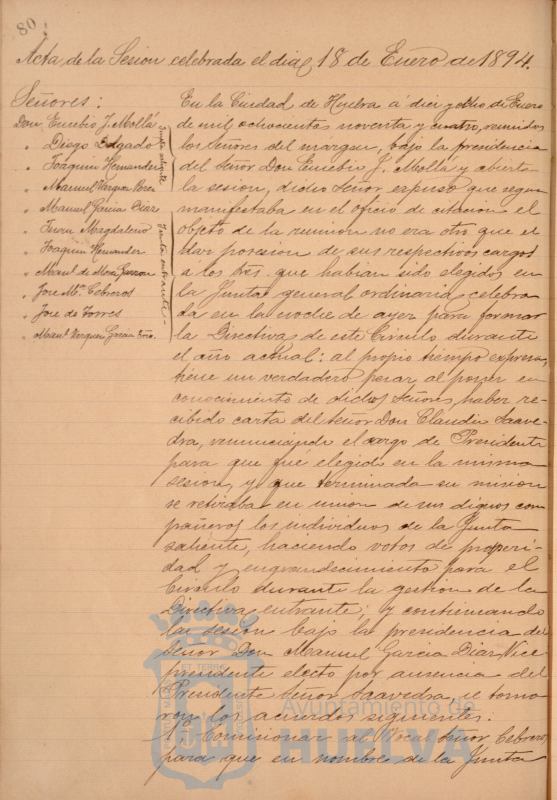 80
Acta de la Sesion celebrada el dia 18 de Enero de 1894.
Señores:
Don Eusebio J. Mollá
" Diego Delgado
" Joaquin Hernandez
" Manuel Vazquez Perez
Junta saliente
" Manuel Garcia Diaz
" Magdaleno
" Joaquin Hernandez
" Manl. de Mora
" Jose Ma. Cebreros
" Jose de Torres
" Manl. Vazquez Garcia
Junta entrante
En la Ciudad de Huelva á diez y ocho de Enero
de mil ochocientos noventa y cuatro, reunidos
los Señores del margen, bajo la presidencia
del Señor Don Eusebio J. Mollá y abierta
la sesion, dicho Señor expuso que segun
manifestaba en el oficio de citacion el
objeto de la reunion no era otro que el
dar posesion de sus respectivos cargos
á los Sres. que habian sido elegidos en
la Junta general ordinaria celebra-
da en la noche de ayer para formar
la Directiva de este Circulo durante
el año actual: al propio tiempo expresa,
tiene un verdadero pesar al poner en
conocimiento de dichos Señores, haber re-
cibido carta del Señor Don Claudio Saave-
dra, renunciando el cargo de Presidente
para que fué elegido en la misma
sesion, y que terminada su mision
se retiraba en union de sus dignos com
pañeros los individuos de la Junta
saliente, haciendo votos de prosperi-
dad y engrandecimiento para el
Circulo durante la gestion de la
Directiva entrante; y continuando
la sesion bajo la presidencia del
Señor Don Manuel Garcia Diaz, Vice
presidente electo por ausencia del
Presidente Señor Saavedra, se toma
ron los acuerdos siguientes:
1º Comisionar al Vocal Señor Cebreros,
para que en nombre de la Junta
ET TERRÆ
Ayuntamiento de
HUELVA